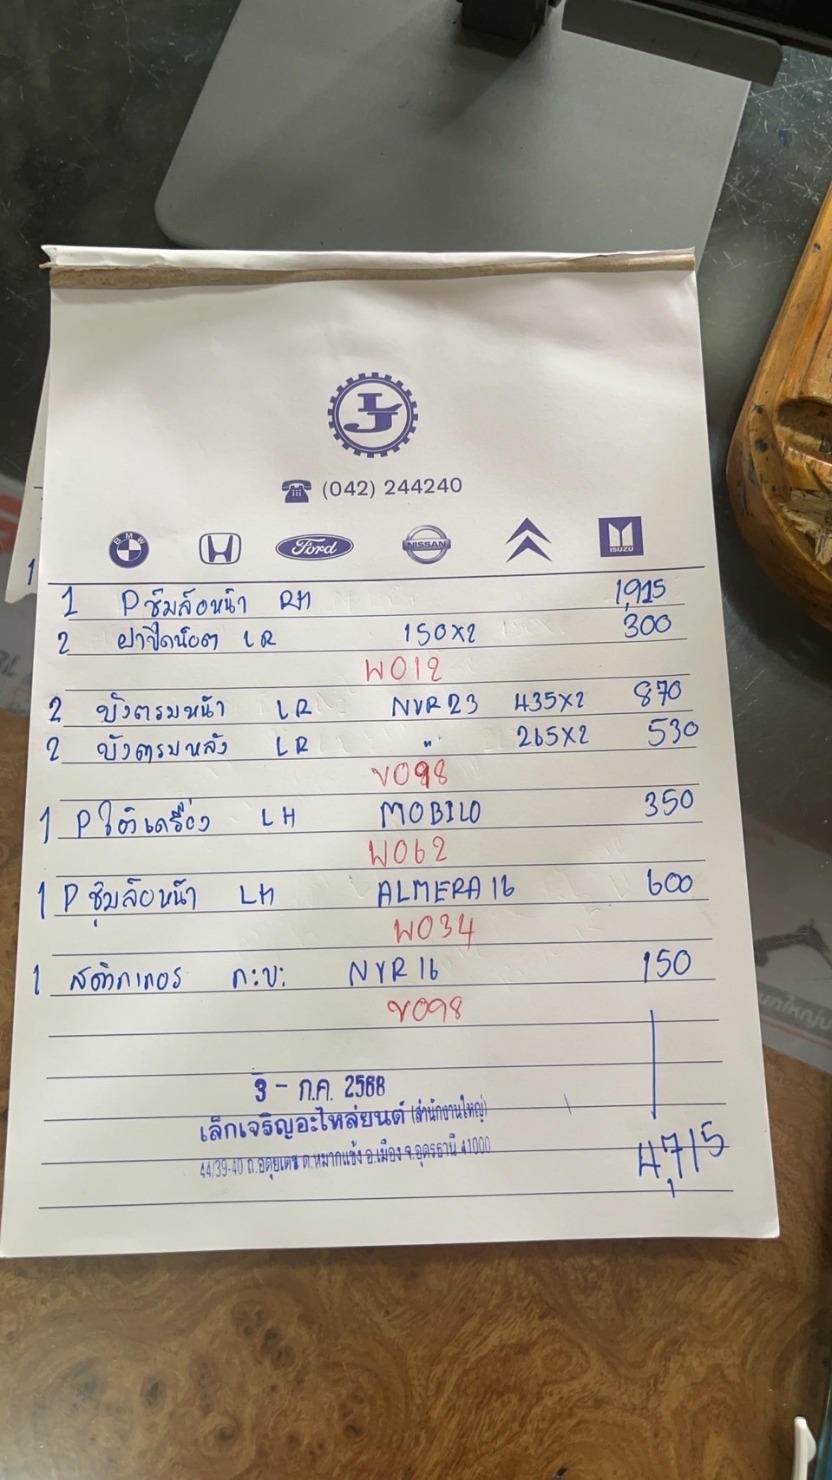 (042) 244240
BMW
Ford
NISSAN
ISUZU
1 P ซุ้มล้อหน้า RH 1,915
2 ฝาปิดน็อต LR 150x2 300
W012
2 บังตรมหน้า LR NVR23 435x2 870
2 บังตรมหลัง LR " 265x2 530
V098
1 P ใต้เครื่อง LH MOBILO 350
W062
1 P ซุ้มล้อหน้า LH ALMERA 16 600
W034
1 สติกเกอร์ ก:บ: NVR16 150
V098
3 - ก.ค. 2568
เล็กเจริญอะไหล่ยนต์ (สำนักงานใหญ่)
44/39-40 ถ.อดุยเดช ต.หมากแข้ง อ.เมือง จ.อุดรธานี 41000
4,715